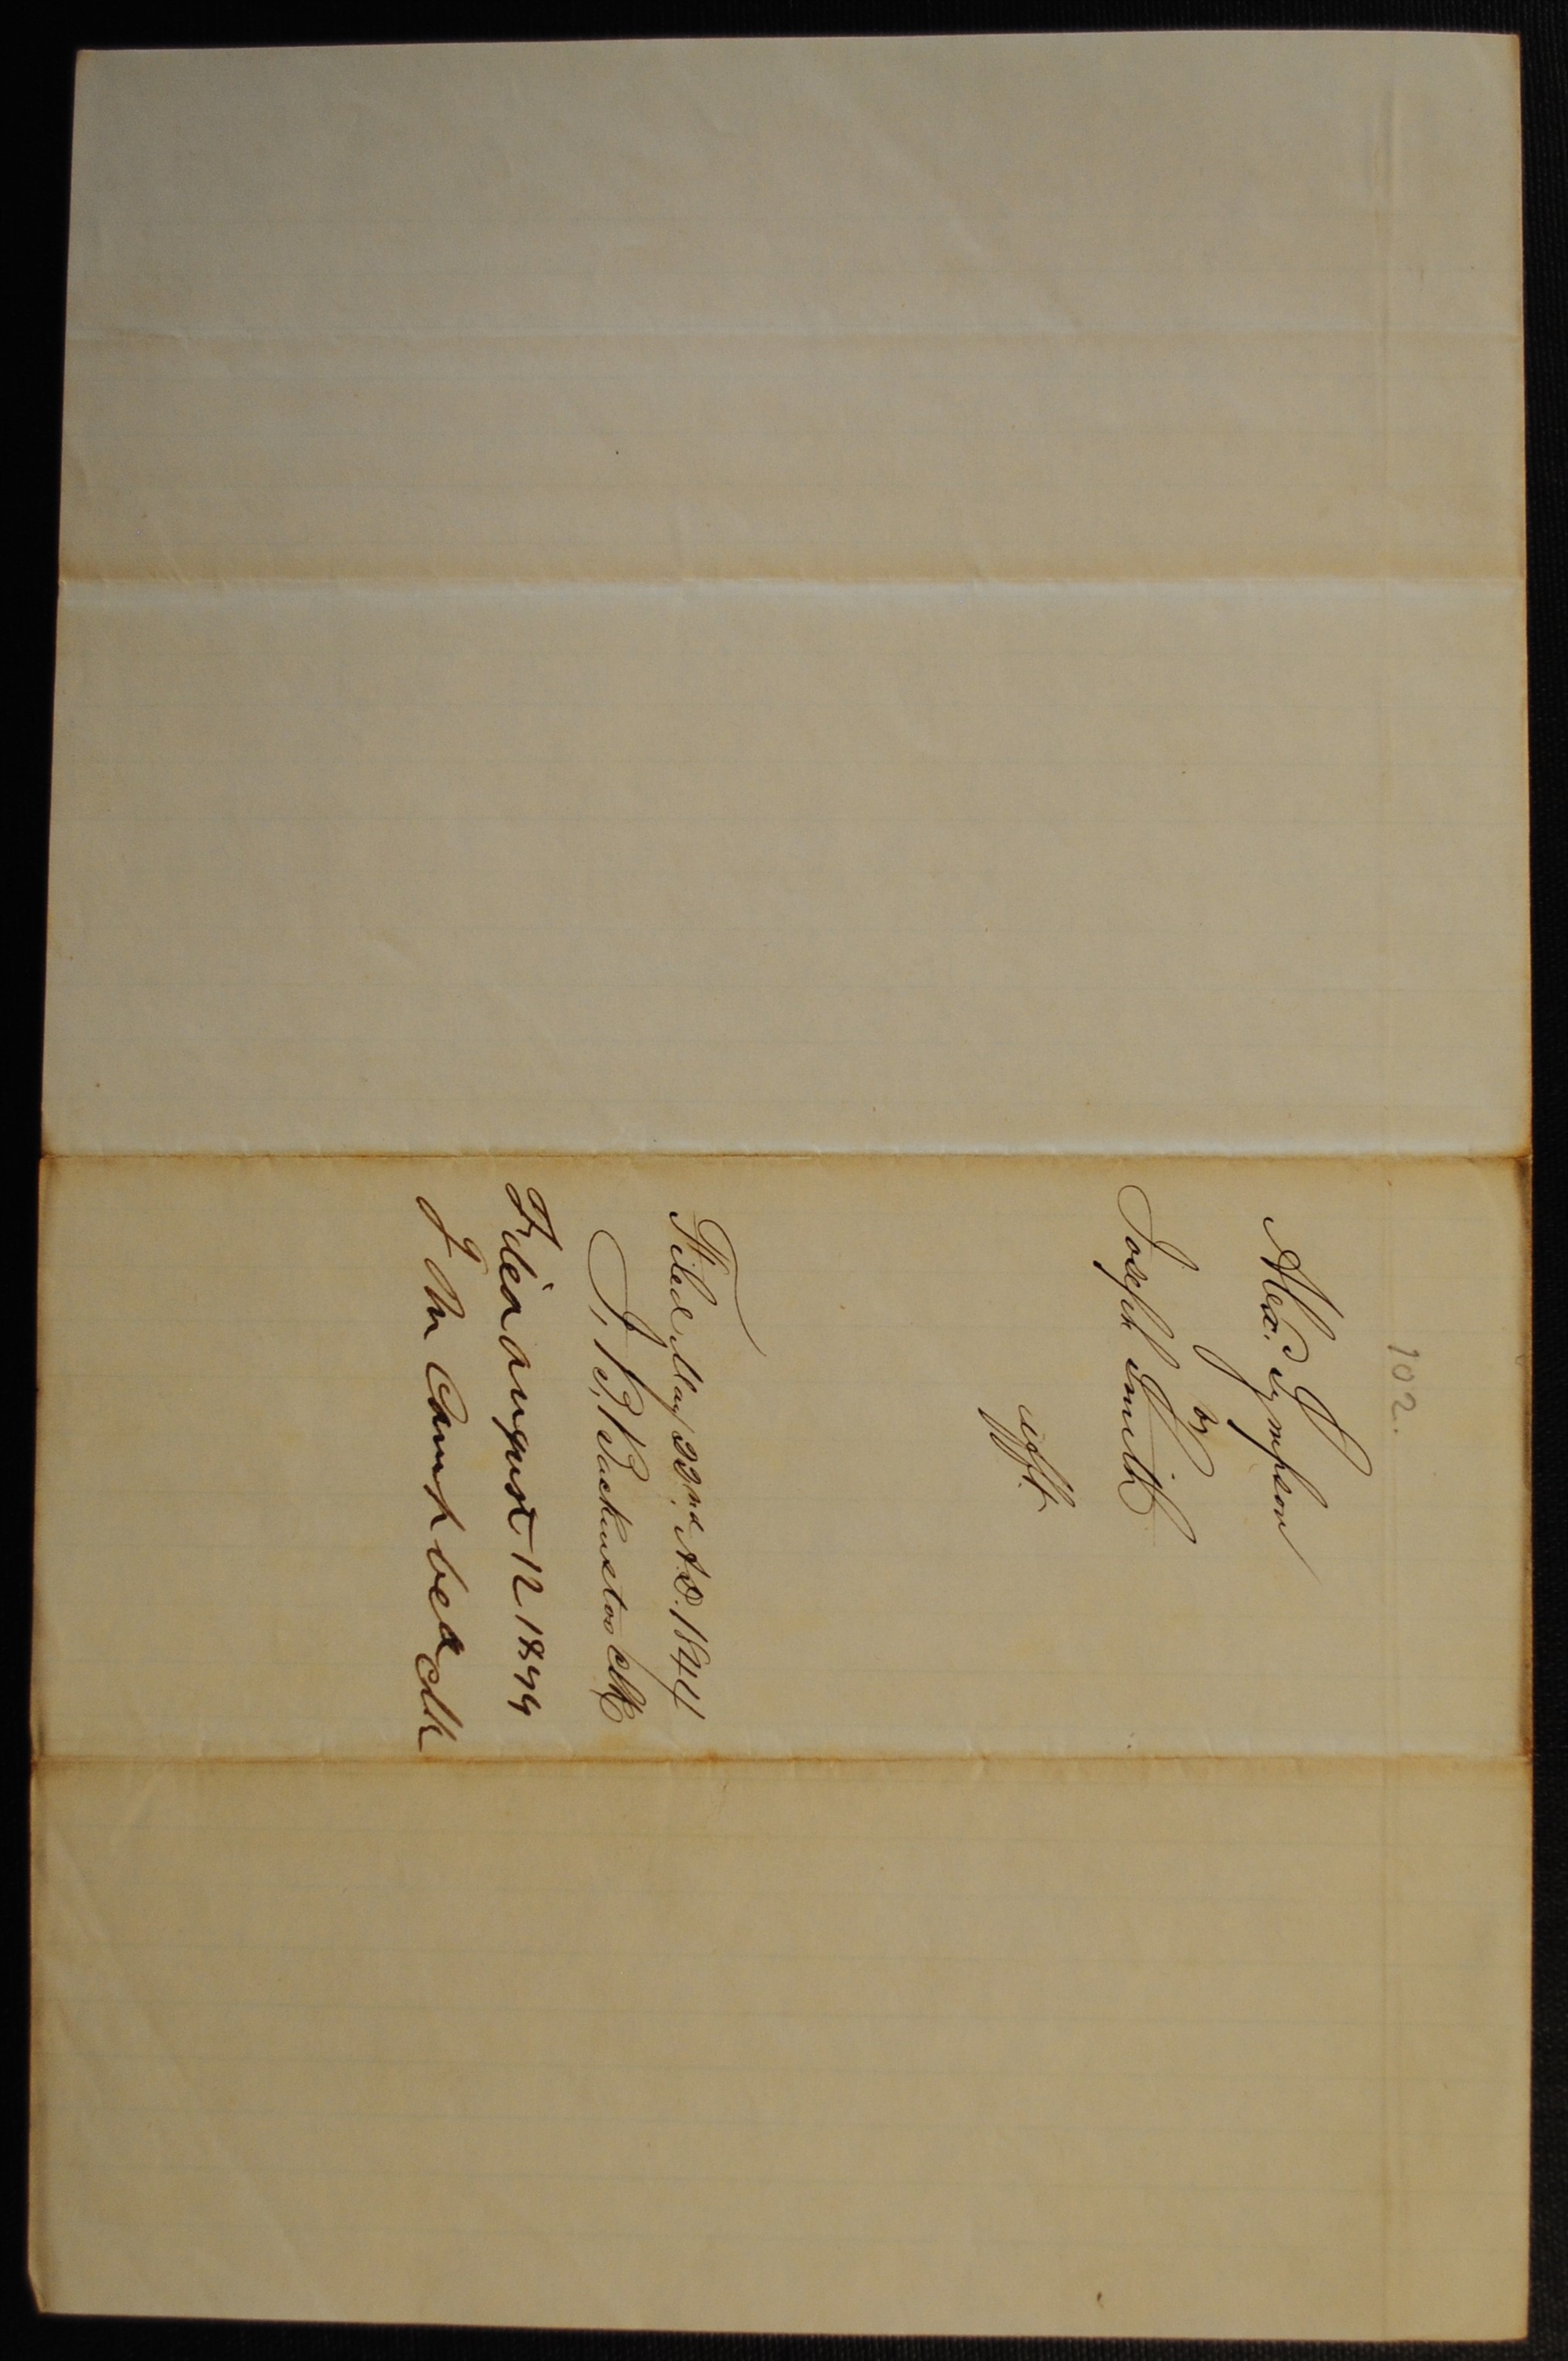 102.
Alex. Sympson
vs
Joseph Smith
afft.
Filed May 22nd A.D. 1844
J. B. Backenstos Clk
Filed august 12 1844
J M Campbell Clk